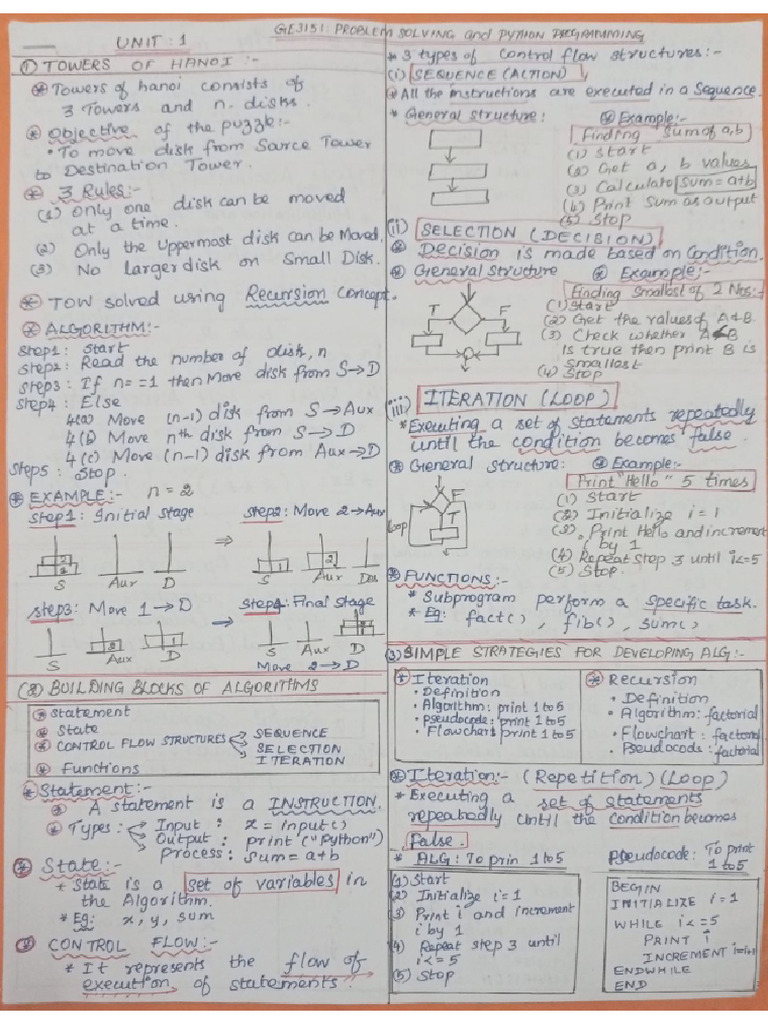 GE3151: PROBLEM SOLVING and PYTHON PROGRAMMING
UNIT : 1
① TOWERS OF HANOI :-
* Towers of hanoi consists of
3 Towers and n. disks.
* Objective of the puzzle:-
• To move disk from Source Tower
to Destination Tower.
* 3 Rules:-
(1) Only one disk can be moved
at a time.
(2) Only the Uppermost disk can be Moved.
(3) No larger disk on Small Disk.
* TOW solved using Recursion Concept.
* ALGORITHM:-
Step1: Start
Step2: Read the number of disk, n
Step3: If n==1 then Move disk from S→D
Step4: Else
4(a) Move (n-1) disk from S→Aux
4(b) Move nth disk from S→D
4(c) Move (n-1) disk from Aux→D
Step5: Stop.
* EXAMPLE:- n=2
Step1: Initial Stage
Step2: Move 2→Aux
S Aux D
S Aux Des
Step3: Move 1→D
Step4: Final Stage
S Aux D
S Aux D
Move 2→D
(2) BUILDING BLOCKS OF ALGORITHMS
* Statement
* State
* CONTROL FLOW STRUCTURES SEQUENCE
SELECTION
ITERATION
* Functions
* Statement:-
* A statement is a INSTRUCTION.
* Types: Input : x=input()
Output : print("Python")
Process : Sum=a+b
* State:-
+ State is a set of variables in
the Algorithm.
* Eg: x, y, sum
* CONTROL FLOW:-
* It represents the flow of
execution of statements.
* 3 types of control flow structures:-
(i) SEQUENCE (ACTION)
* All the instructions are executed in a Sequence.
* General Structure:
* Example:-
Finding Sum of a,b
(1) Start
(2) Get a, b values
(3) Calculate Sum=a+b
(4) Print Sum as output
(5) Stop
(ii) SELECTION (DECISION)
* Decision is made based on Condition.
* General Structure
* Example:-
T F
Finding Smallest of 2 Nos:-
(1) Start
(2) Get the values of A&B.
(3) Check whether A<B
Is true then print B is
Smallest
(4) Stop
(iii) ITERATION (LOOP)
* Executing a set of statements repeatedly
until the condition becomes false.
* General Structure:
* Example:-
F
T
Loop
Print "Hello" 5 times
(1) Start
(2) Initialize i=1
(3). Print Hello and increment
by 1
(4) Repeat step 3 until i<=5
(5) Stop.
* FUNCTIONS:-
* Subprogram perform a specific task.
* Eg: fact(), fib(), sum()
(3) SIMPLE STRATEGIES FOR DEVELOPING ALG:-
* Iteration
• Definition
• Algorithm: print 1 to 5
• Pseudocode: print 1 to 5
• Flowchart print 1 to 5
* Recursion
• Definition
• Algorithm: factorial
• Flowchart: factorial
• Pseudocode: factorial
* Iteration:- (Repetition) (Loop)
* Executing a set of statements
repeatedly Until the condition becomes
False.
* ALG: To prin 1 to 5
(1) Start
(2) Initialize i=1
(3) Print i and increment
i by 1
(4) Repeat step 3 until
i<=5
(5) Stop
Pseudocode: To print
1 to 5
BEGIN
INITIALIZE i=1
WHILE i<=5
PRINT i
INCREMENT i=i+1
ENDWHILE
END